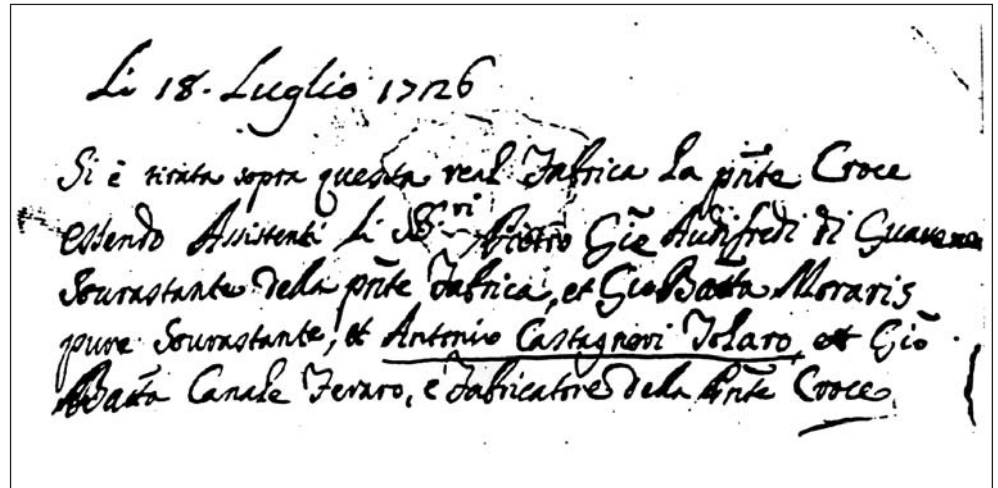 Li 18. Luglio 1726
Si è tirata sopra questa real Fabrica la pñte Croce
essendo Assistenti li SS.ri Pietro Giõ Audifredi di
Sourastante della pñte Fabrica, et Gio Batta Moraris
pure Sourastante, et Antonio Castagneri Tolaro, et Giõ
Batta Canale Feraro, e Fabricatore della pñte Croce